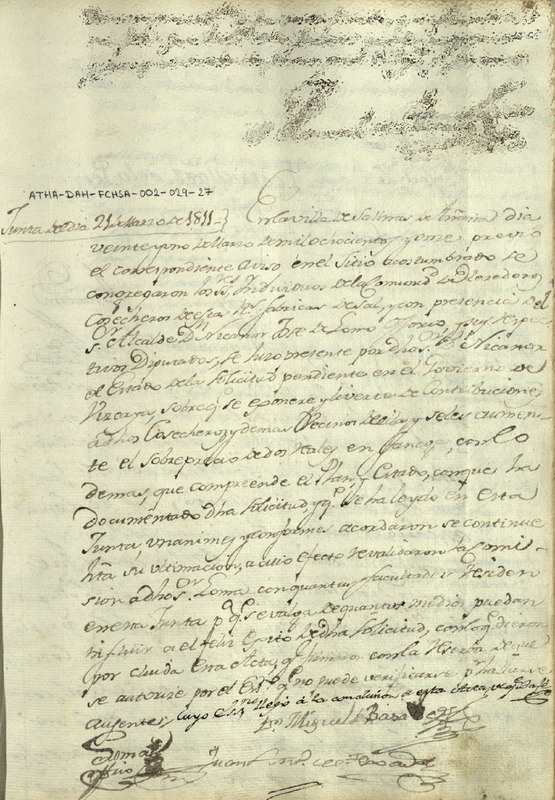 ATHA-DAH-FCHSA-002-029-27
Junta del dia 21 de Marzo de 1811 } En la villa de Salinas de Añana dia
veinte y uno de Marzo de mil ochocientos y onze previo
el correspondiente Aviso en el Sitio acostumbrado se
congregaron los Sres Individuos de la Comunid de Herederos
Cosecheros de estas Rs fabricas de Sal, y con presencia del
Sr Alcalde Dn Nicanor Jose de Loma Ossorio, y sus respec
tivos Diputados, se hizo presente por dho Sr Dn Nicanor
el Estado de la Solicitud pendiente en el Govierno de
Vizcaya, sobre q se exonere y liverte de Contribuciones
a dhos Cosecheros y demas Vecinos de Villa y se les aumen
te el sobreprecio de dos reales en fanega, con lo
demas, que comprende el Plan, y Estado, con que ha
documentado dha solicitud, y q se ha leydo en esta
Junta, unanimes y conformes acordaron se continue
hta su ultimacion, a cuio efecto revalidaron la Comi-
sion a dho Sr Loma, con quantas facultades residen
en esta Junta pa q se valga de quantos medios puedan
influir a el feliz exito de dha solicitud, con lo q dieron
por cluida esta Acta, q firmaron con la reserva de que
se autorize por el Essno q no puede verificarse pr hallarse
ausente, cuyo Essno llegó á la conclusion de esta Acta, de q doy fe
Dn Miguel de Baso
Loma
Ossorio
Juan Anto de